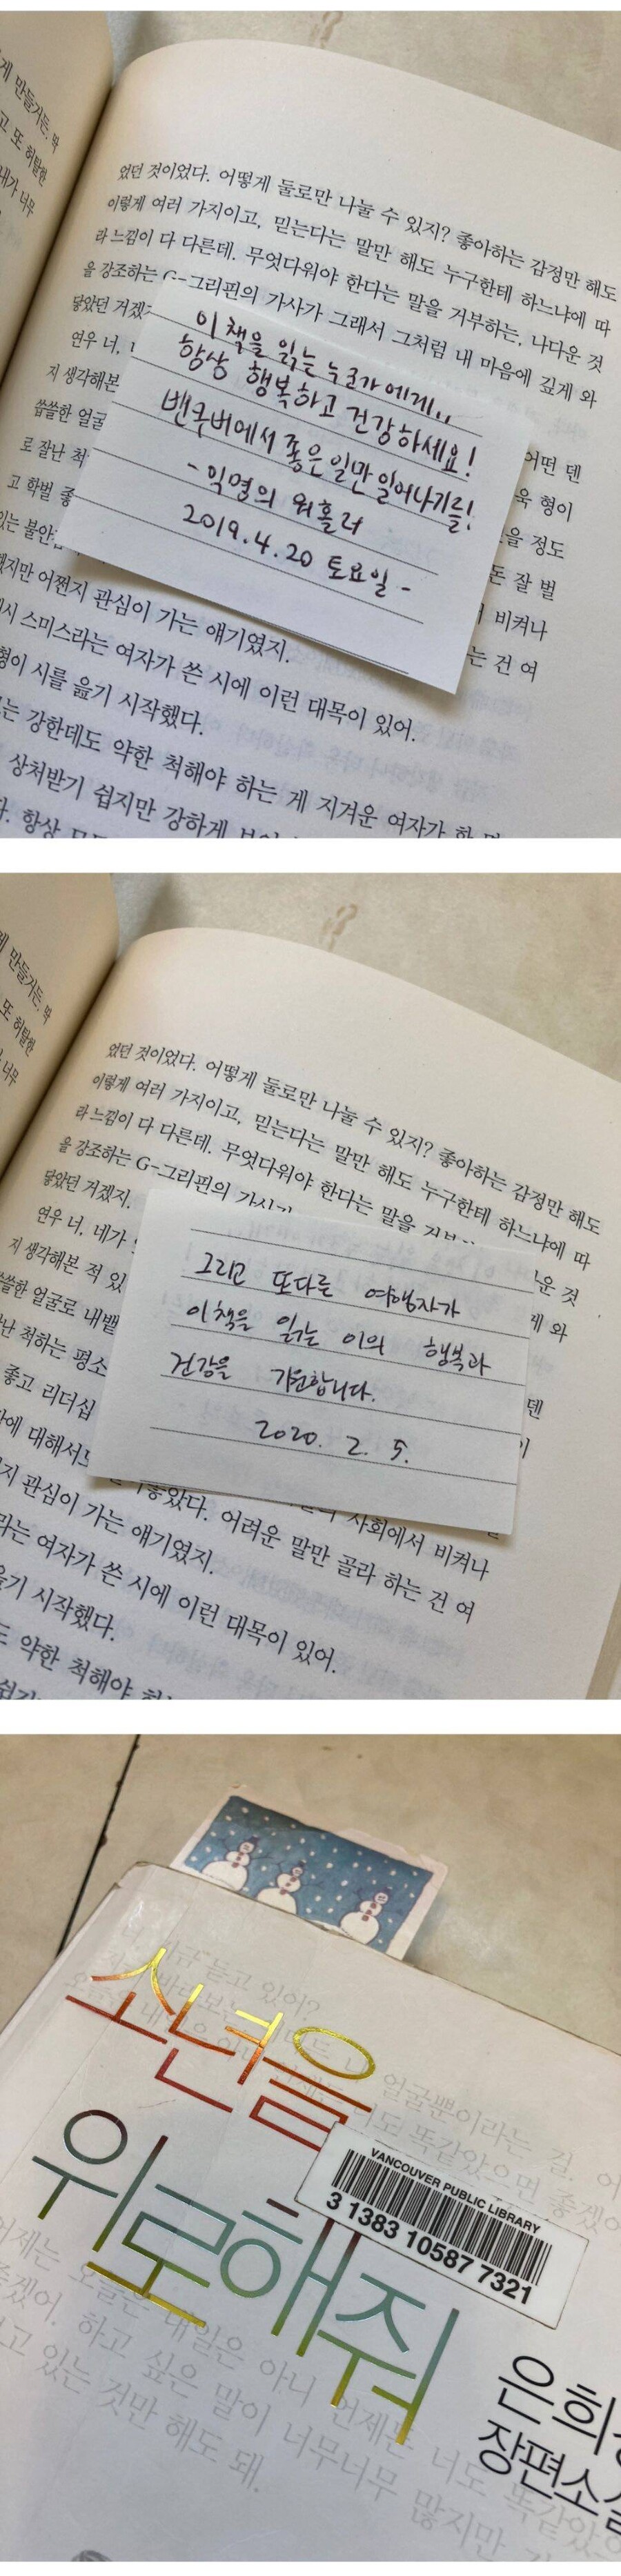 게 만들거든. 딱
고 또 허탈한
내가 너무
었던 것이었다. 어떻게 둘로만 나눌 수 있지? 좋아하는 감정만 해도
이렇게 여러 가지이고, 믿는다는 말만 해도 누구한테 하느냐에 따
라 느낌이 다 다른데. 무엇다워야 한다는 말을 거부하는, 나다운 것
을 강조하는 G-그리핀의 가사가 그래서 그처럼 내 마음에 깊게 와
닿았던 거겠지
연우 너,
지 생각해본
씁쓸한 얼굴
로 잘난 척
고 학벌 좋
있는 불안
이 책을 읽는 누군가에게..
항상 행복하고 건강하세요!
밴쿠버에서 좋은 일만 일어나기를!
- 익명의 워홀러
2019.4.20 토요일 -
어떤 덴
욱 형이
을 정도
돈 잘 벌
비켜나
는 건 여
겠지만 어쩐지 관심이 가는 얘기였지.
시 스미스라는 여자가 쓴 시에 이런 대목이 있어.
형이 시를 읊기 시작했다.
는 강한데도 약한 척해야 하는 게 지겨운 여자가 한
상처받기 쉽지만 강하게
항상
만들거든. 딱
또 허탈한
너무
었던 것이었다. 어떻게 둘로만 나눌 수 있지? 좋아하는 감정만 해도
이렇게 여러 가지이고, 믿는다는 말만 해도 누구한테 하느냐에 따
라 느낌이 다 다른데. 무엇다워야 한다는 말을
운 것
을 강조하는 G-그리핀의
게 와
닿았던 거겠지.
연우 너, 네가
지 생각해본 적 있
쓸한 얼굴로 내뱉
난 척하는 평소
좋고 리더십
에 대해서
그리고 또다른 여행자가
이 책을 읽는 이의 행복과
건강을 기원합니다.
2020. 2. 5.
덴
좋았다. 어려운 말만 골라 하는 건 여
사회에서 비켜나
지 관심이 가는 얘기였지.
라는 여자가 쓴 시에 이런 대목이 있어.
읊기 시작했다.
도 약한 척해야
소년을
위로해줘
VANCOUVER PUBLIC LIBRARY
3 1383 10587 7321
은희
장편소설